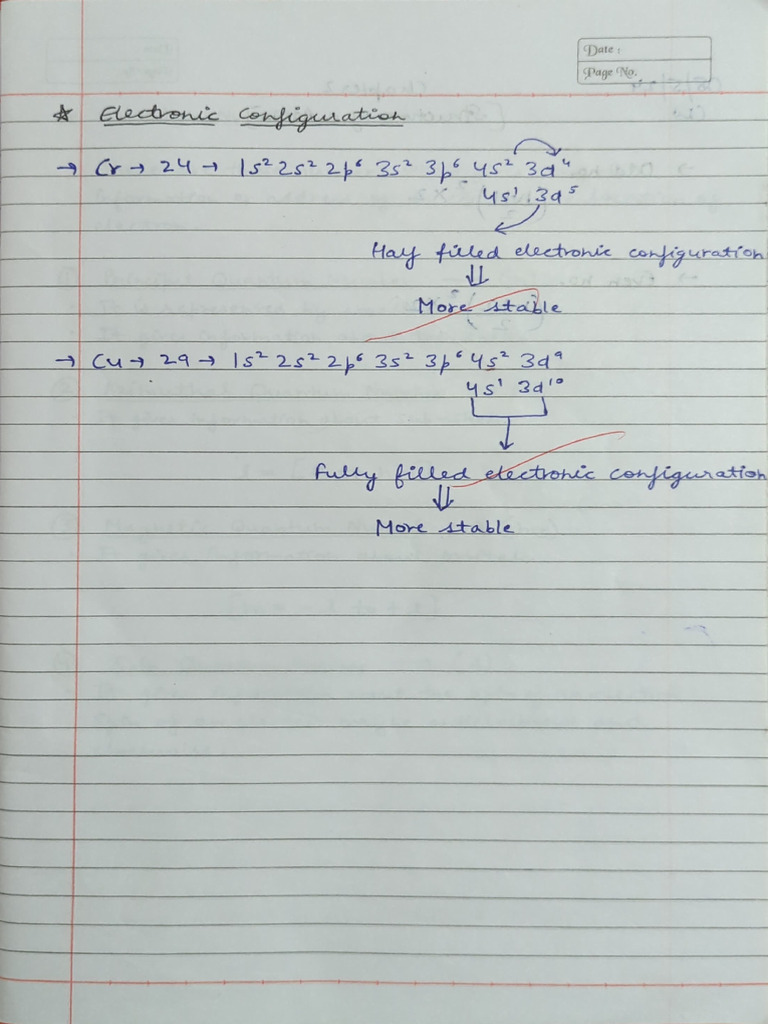 Date :
Page No.
☆ Electronic Configuration
→ Cr → 24 → 1s² 2s² 2p⁶ 3s² 3p⁶ 4s² 3d⁴
4s¹ 3d⁵
Half filled electronic configuration
⇓
More stable
→ Cu → 29 → 1s² 2s² 2p⁶ 3s² 3p⁶ 4s² 3d⁹
4s¹ 3d¹⁰
Fully filled electronic configuration
⇓
More stable